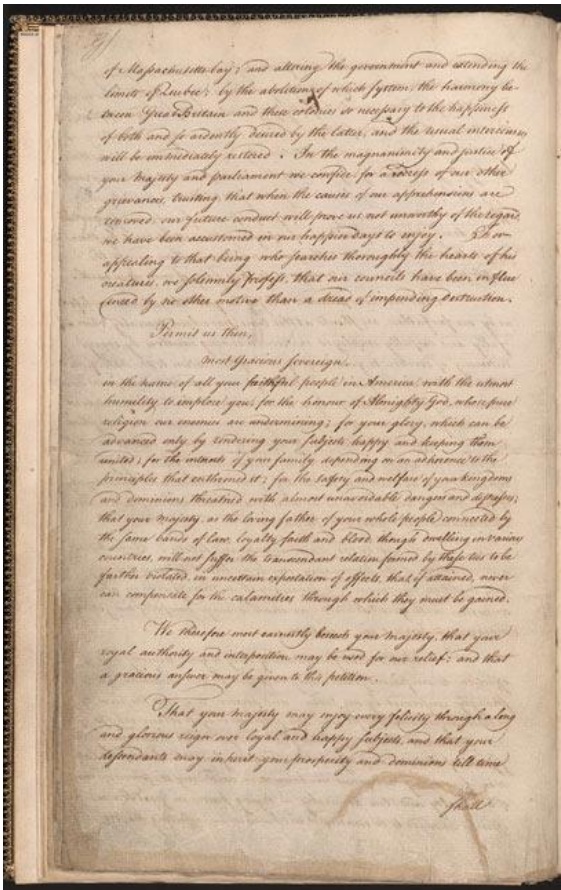 of Massachusetts bay; and altering the government and extending the
limits of Quebec; by the abolition of which system, the harmony be-
tween Great Britain and these colonies so necessary to the happiness
of both and so ardently desired by the latter, and the usual intercourses
will be immediately restored. In the magnanimity and justice of
your majesty and parliament we confide, for a redress of our other
grievances, trusting, that when the causes of our apprehensions are
removed, our future conduct will prove us not unworthy of the regard,
we have been accustomed in our happier days to enjoy. For
appealing to that being who searches thoroughly the hearts of his
creatures, we solemnly profess, that our councils have been influ
enced by no other motive than a dread of impending destruction.
Permit us then,
most gracious sovereign,
in the name of all your faithful people in America, with the utmost
humility to implore you, for the honour of Almighty God, whose pure
religion our enemies are undermining; for your glory, which can be
advanced only by rendering your subjects happy and keeping them
united; for the interests of your family depending on an adherence to the
principles that enthroned it; for the safety and welfare of your kingdoms
and dominions threatned with almost unavoidable dangers and distresses;
that your majesty, as the loving father of your whole people, connected by
the same bands of law, loyalty, faith and blood, though dwelling in various
countries, will not suffer the transcendant relation formed by these ties to be
farther violated, in uncertain expectation of effects, that, if attained, never
can compensate for the calamities through which they must be gained.
We therefore most earnestly beseech your majesty, that your
royal authority and interposition may be used for our relief; and that
a gracious answer may be given to this petition.
That your majesty may enjoy every felicity through a long
and glorious reign over loyal and happy subjects, and that your
descendants may inherit your prosperity and dominions till time
shall